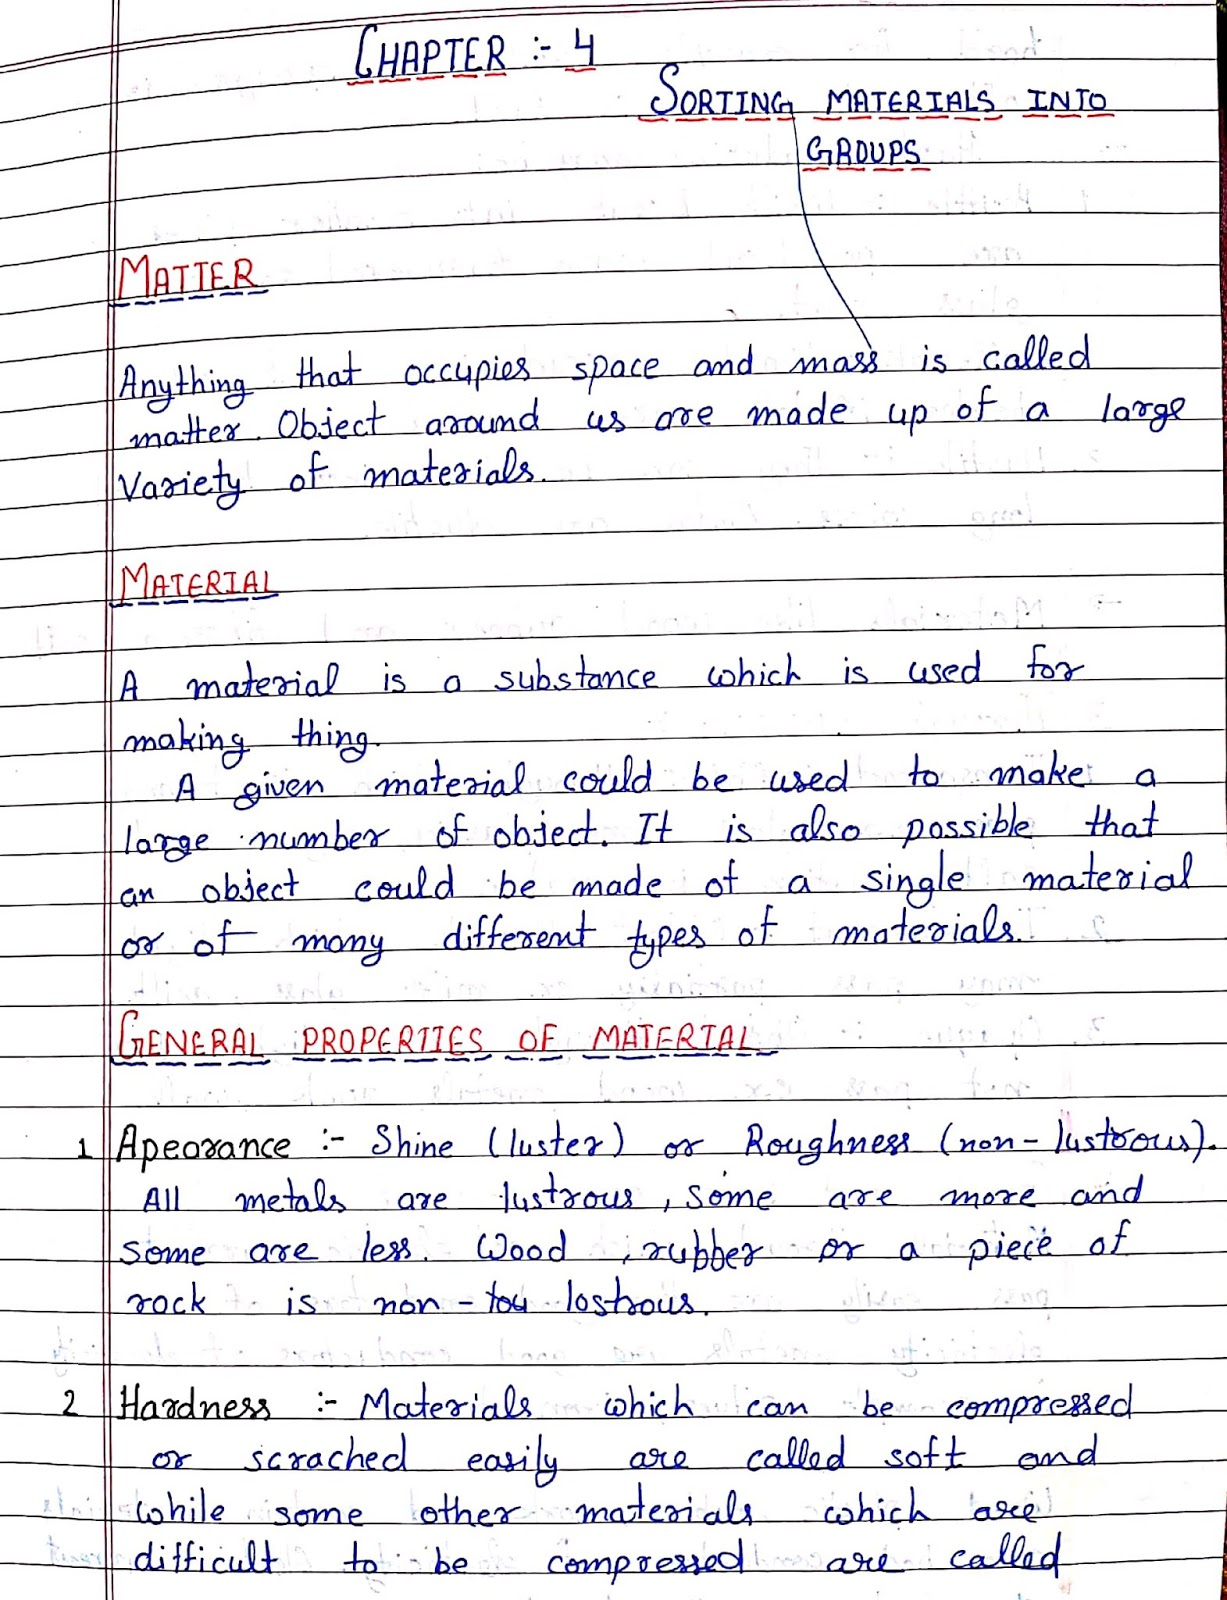 CHAPTER :- 4
SORTING MATERIALS INTO
GROUPS
MATTER
Anything that occupies space and mass is called
matter. Object around us are made up of a large
Variety of materials.
MATERIAL
A material is a substance which is used for
making thing.
A given material could be used to make a
large number of object. It is also possible that
an object could be made of a single material
or of many different types of materials.
GENERAL PROPERTIES OF MATERIAL
1 Apearance :- Shine (luster) or Roughness (non-lustrous).
All metals are lustrous, some are more and
some are less. Wood, rubber or a piece of
rock is non- lostrous.
2 Hardness :- Materials which can be compressed
or scrached easily are called soft and
while some other materials which are
difficult to be compressed are called